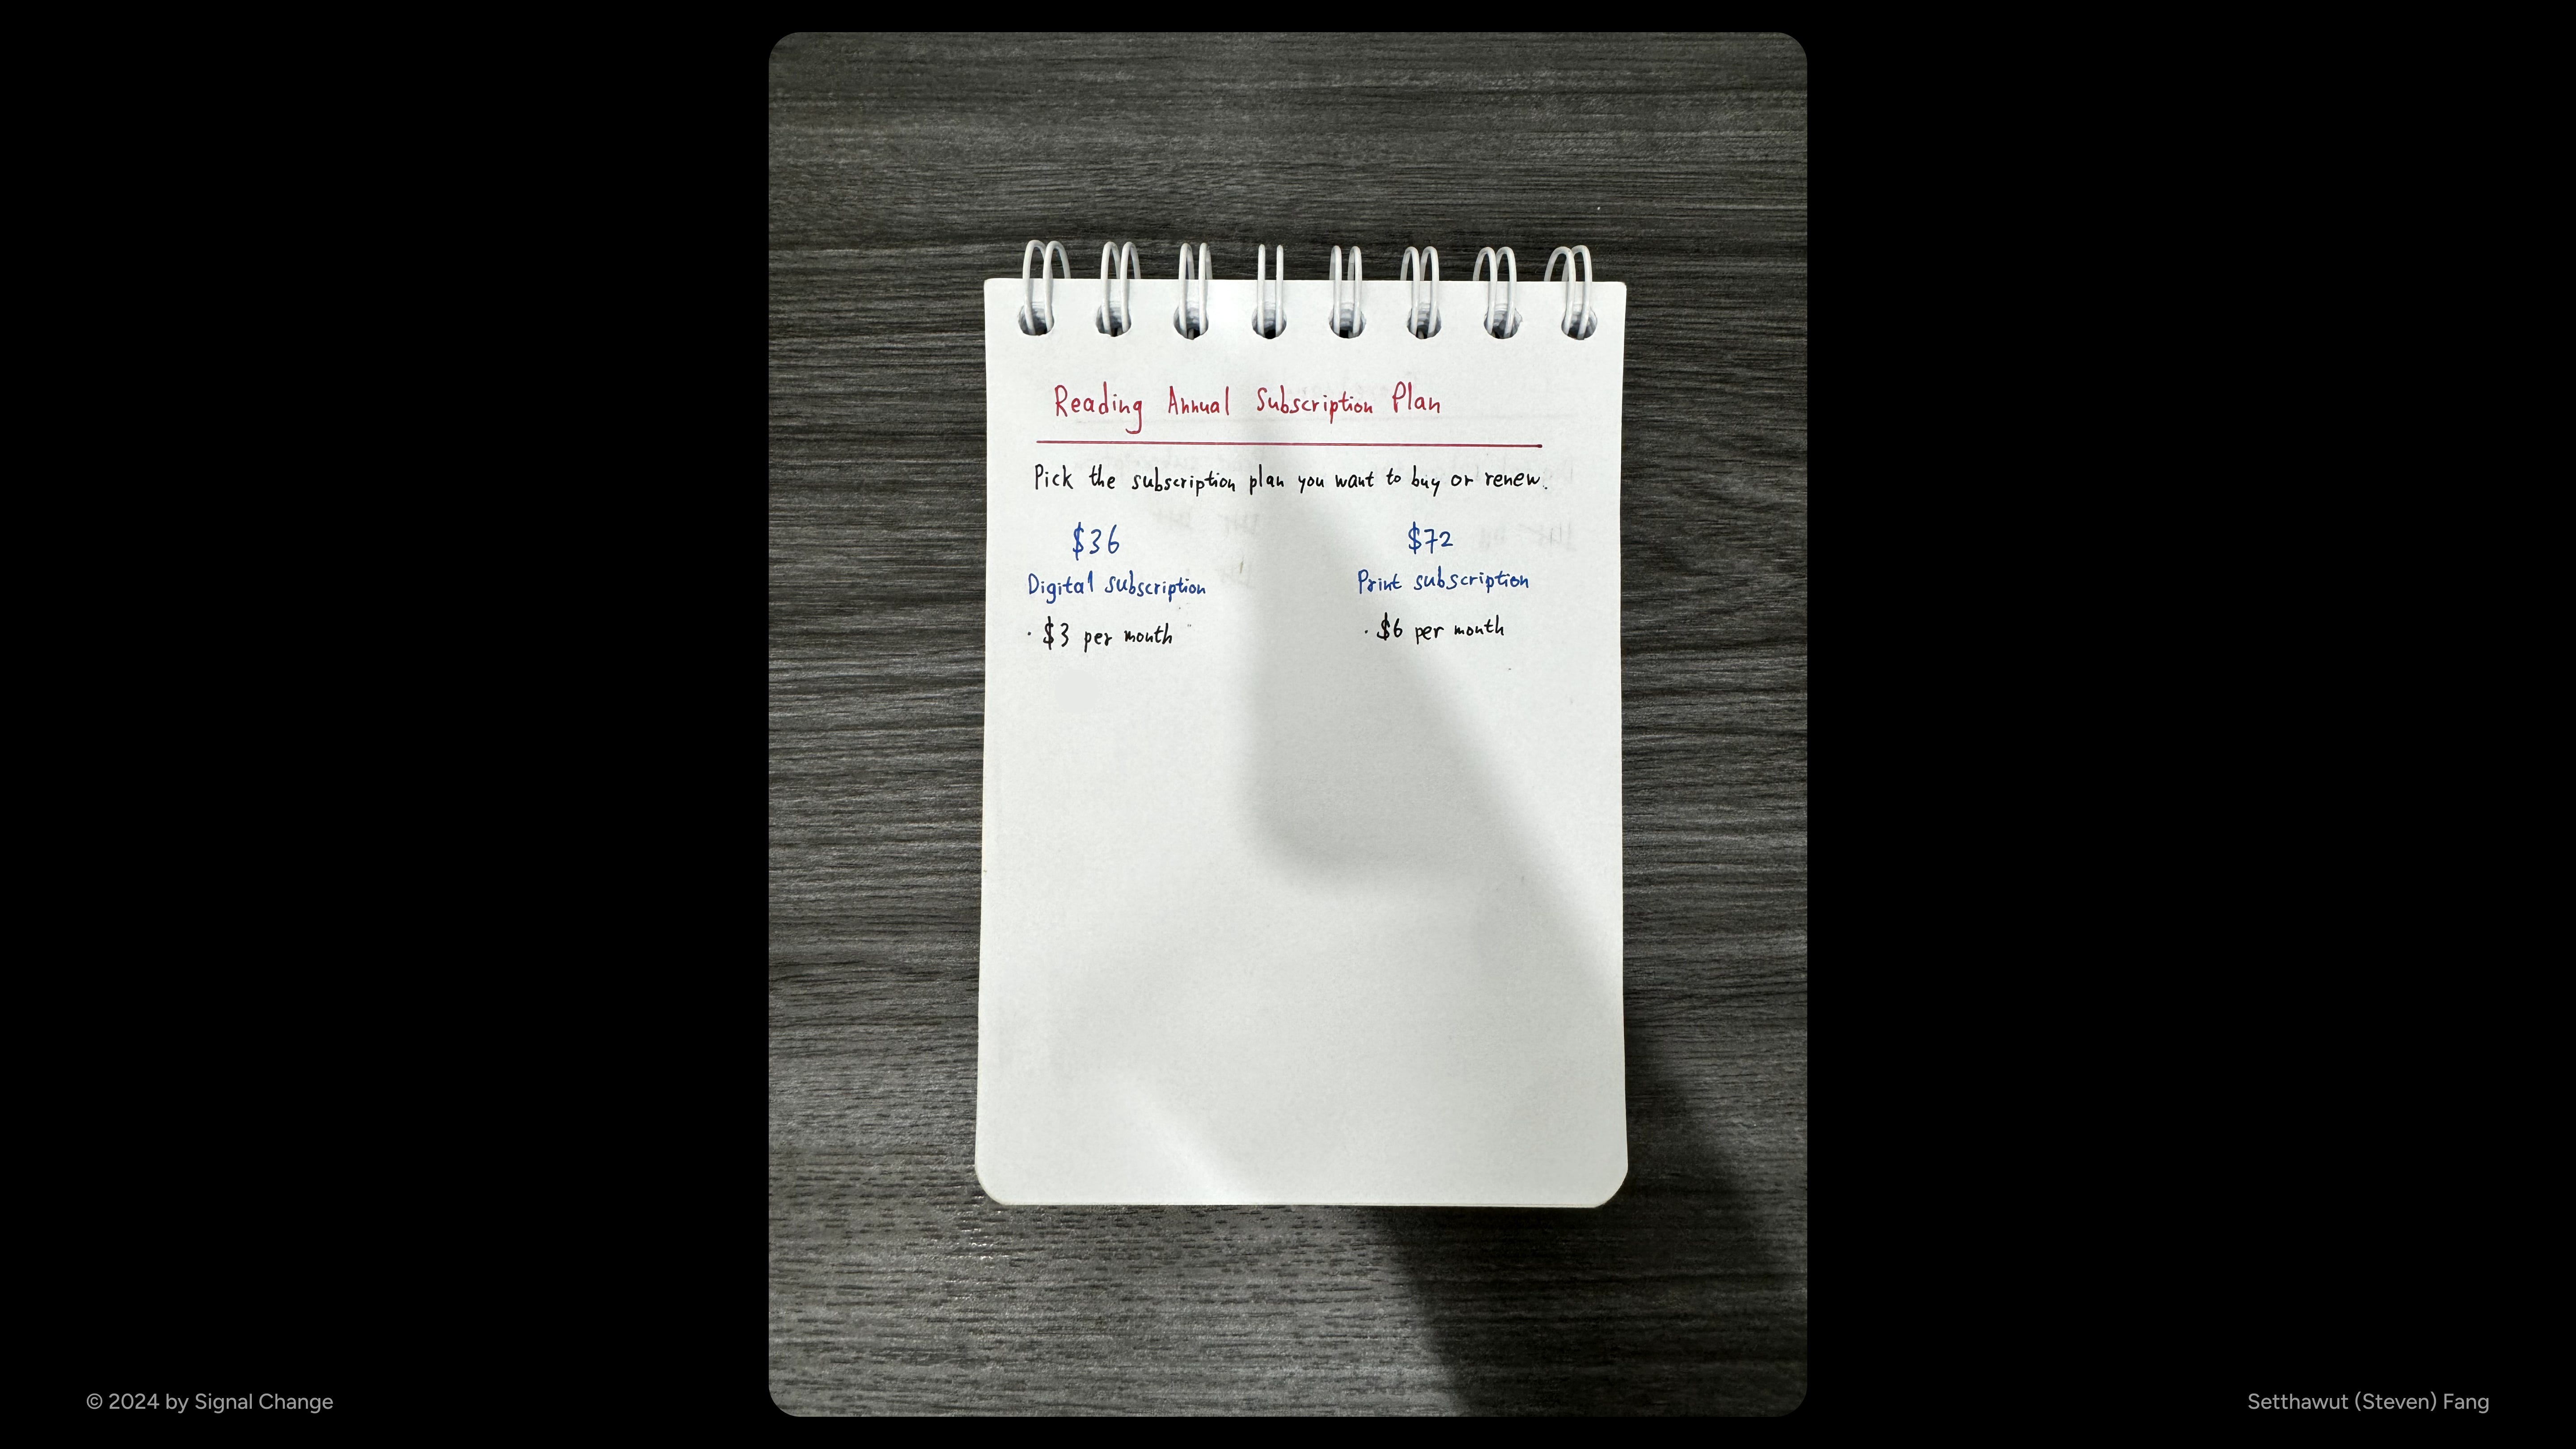 Reading Annual Subscription Plan
Pick the subscription plan you want to buy or renew.
$36
Digital subscription
· $3 per month
$72
Print subscription
· $6 per month
© 2024 by Signal Change
Setthawut (Steven) Fang